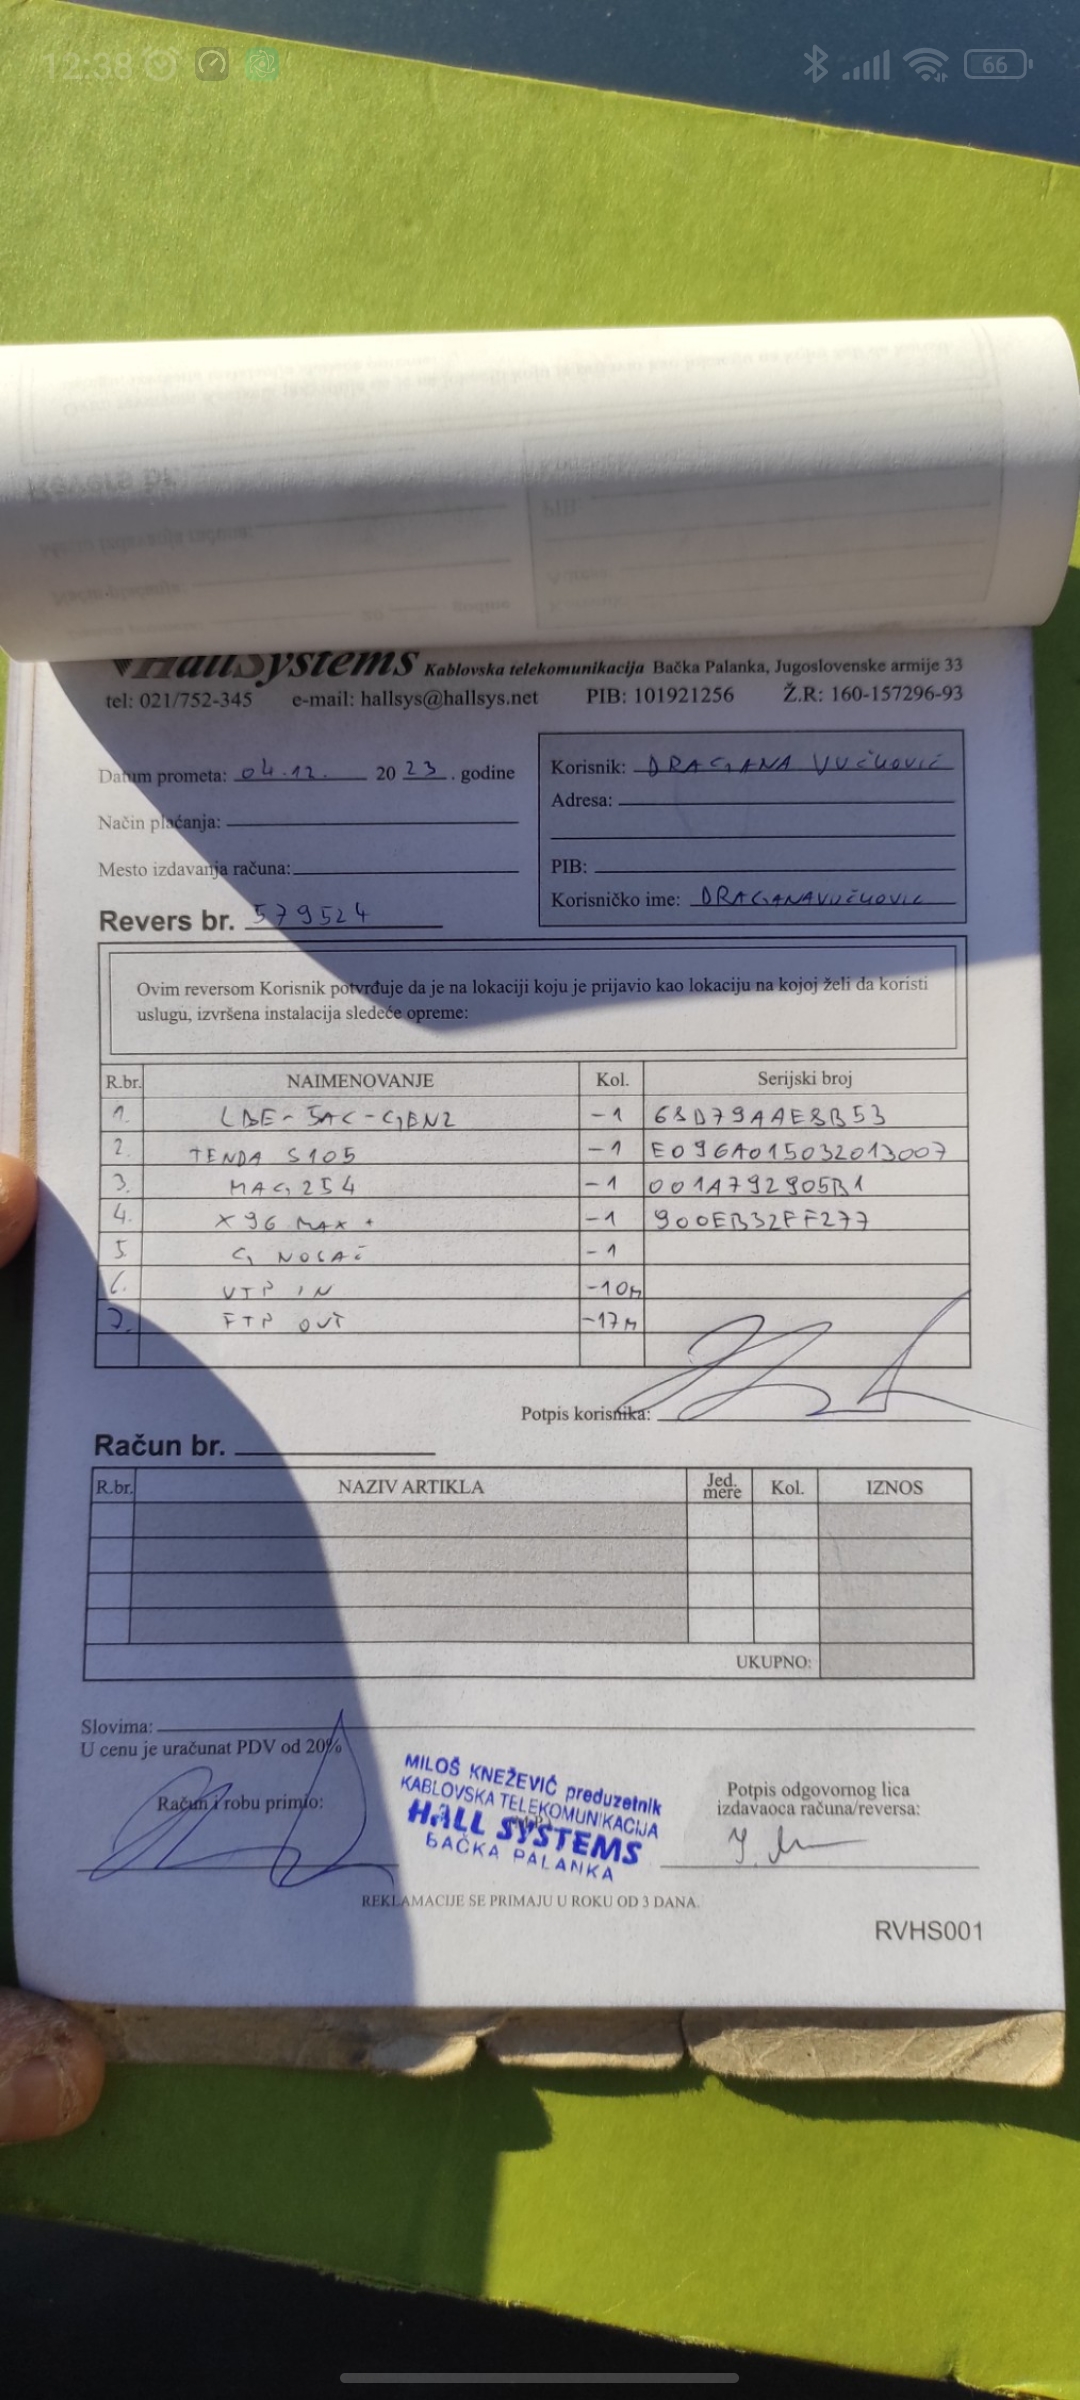 12:38
66
HallSystems Kablovska telekomunikacija Bačka Palanka, Jugoslovenske armije 33
tel: 021/752-345 e-mail: hallsys@hallsys.net PIB: 101921256 Ž.R: 160-157296-93
Datum prometa: 04.12. 20 23. godine
Način plaćanja:
Mesto izdavanja računa:
Revers br. 579524
Korisnik: DRAGANA VUČKOVIĆ
Adresa:
PIB:
Korisničko ime: DRAGANAVUČKOVIC
Ovim reversom Korisnik potvrđuje da je na lokaciji koju je prijavio kao lokaciju na kojoj želi da koristi
uslugu, izvršena instalacija sledeće opreme:
R.br. NAIMENOVANJE Kol. Serijski broj
1. LBE-5AC-GEN2 -1 68D79AAE8B53
2. TENDA S105 -1 E096A015032013007
3. MAG254 -1 001A792905B1
4. X96 MAX+ -1 900EB32FF277
5. G NOSAČ -1
6. UTP IN -10m
7. FTP OUT -17m
Potpis korisnika:
Račun br.
R.br. NAZIV ARTIKLA Jed. mere Kol. IZNOS
UKUPNO:
Slovima:
U cenu je uračunat PDV od 20%
Račun i robu primio:
MILOŠ KNEŽEVIĆ preduzetnik
KABLOVSKA TELEKOMUNIKACIJA
HALL SYSTEMS
BAČKA PALANKA
Potpis odgovornog lica
izdavaoca računa/reversa:
REKLAMACIJE SE PRIMAJU U ROKU OD 3 DANA.
RVHS001